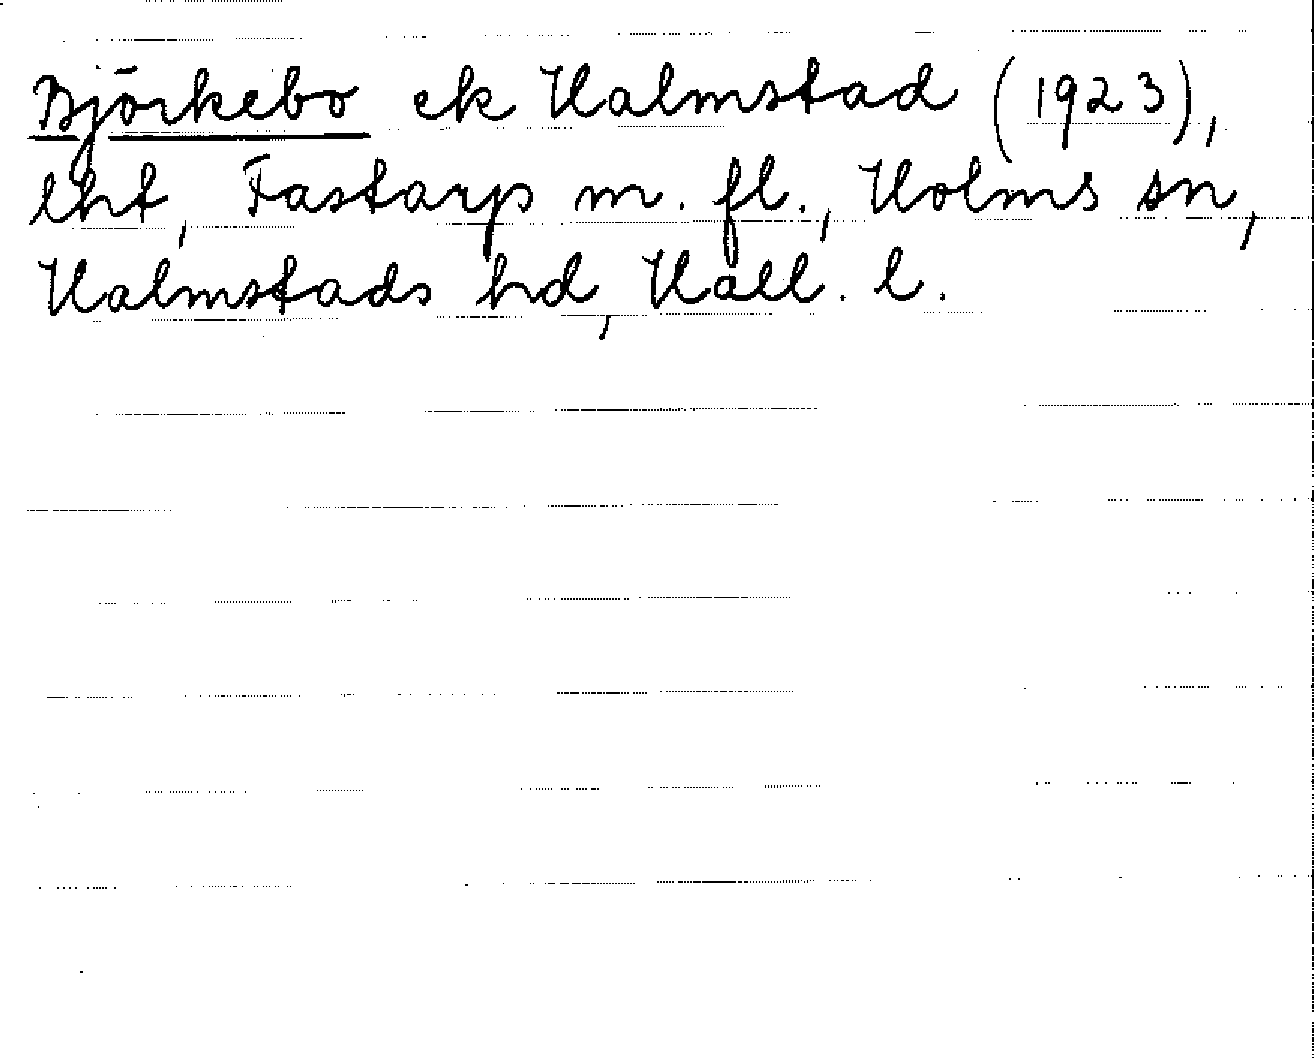 Björkebo ek Halmstad (1923),
lht, Fastarp m. fl., Holms sn,
Halmstads hd, Hall. l.